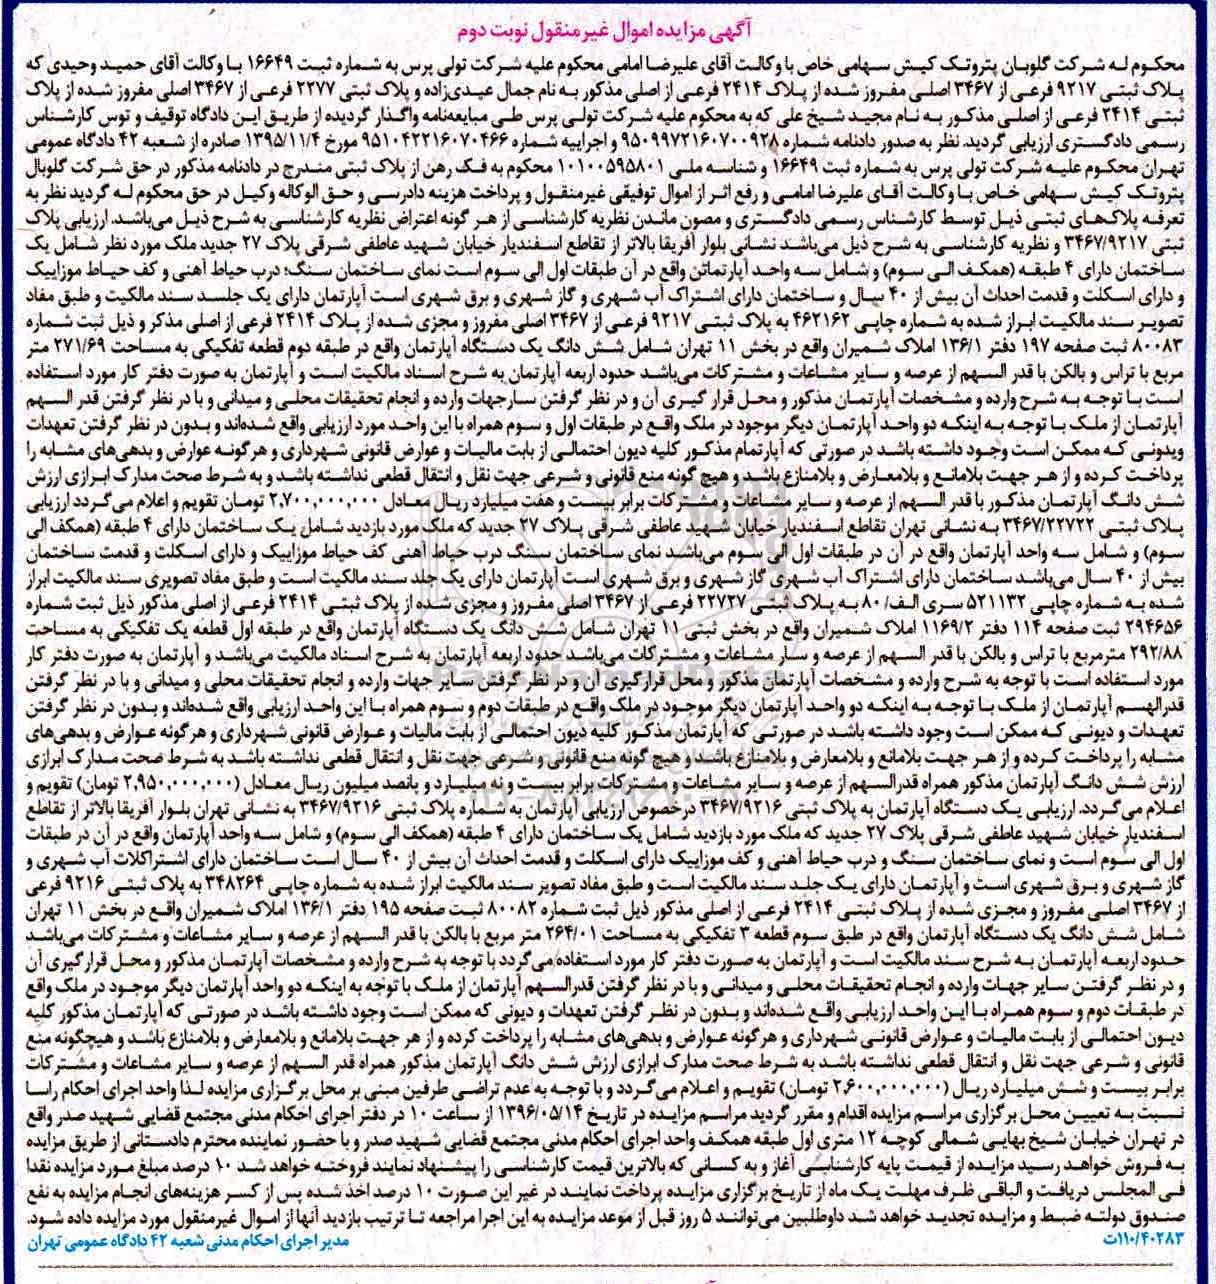 آگهی مزایده اموال غیرمنقول نوبت دوم
محکوم له شرکت گلوبان پتروتک کیش سهامی خاص با وکالت آقای علیرضا امامی محکوم علیه شرکت تولی پرس به شماره ثبت ۱۶۶۴۹ با وکالت آقای حمید وحیدی که
پلاک ثبتی ۹۲۱۷ فرعی از ۳۴۶۷ اصلی مفروز شده از پلاک ۲۴۱۴ فرعی از اصلی مذکور به نام جمال عیدی‌زاده و پلاک ثبتی ۲۲۷۷ فرعی از ۳۴۶۷ اصلی مفروز شده از پلاک
ثبتی ۲۴۱۴ فرعی از اصلی مذکور به نام مجید شیخ علی که به محکوم علیه شرکت تولی پرس طی مبایعه‌نامه واگذار گردیده از طریق این دادگاه توقیف و توس کارشناس
رسمی دادگستری ارزیابی گردید. نظر به صدور دادنامه شماره ۹۵۰۹۹۷۲۱۶۰۷۰۰۹۲۸ و اجراییه شماره ۹۵۱۰۴۲۲۱۶۰۷۰۴۶۶ مورخ ۱۳۹۵/۱۱/۴ صادره از شعبه ۴۲ دادگاه عمومی
تهران محکوم علیه شرکت تولی پرس به شماره ثبت ۱۶۶۴۹ و شناسه ملی ۱۰۱۰۰۵۹۵۸۰۱ محکوم به فک رهن از پلاک ثبتی مندرج در دادنامه مذکور در حق شرکت گلوبال
پتروتک کیش سهامی خاص با وکالت آقای علیرضا امامی و رفع اثر از اموال توقیفی غیرمنقول و پرداخت هزینه دادرسی و حق الوکاله وکیل در حق محکوم له گردید نظر به
تعرفه پلاک‌های ثبتی ذیل توسط کارشناس رسمی دادگستری و مصون ماندن نظریه کارشناسی از هر گونه اعتراض نظریه کارشناسی به شرح ذیل می‌باشد. ارزیابی پلاک
ثبتی ۳۴۶۷/۹۲۱۷ و نظریه کارشناسی به شرح ذیل می‌باشد نشانی بلوار آفریقا بالاتر از تقاطع اسفندیار خیابان شهید عاطفی شرقی پلاک ۲۷ جدید ملک مورد نظر شامل یک
ساختمان دارای ۴ طبقه (همکف الی سوم) و شامل سه واحد آپارتمانی واقع در آن طبقات اول الی سوم است نمای ساختمان سنگ؛ درب حیاط آهنی و کف حیاط موزاییک
و دارای اسکلت و قدمت احداث آن بیش از ۴۰ سال و ساختمان دارای اشتراک آب شهری و گاز شهری و برق شهری است آپارتمان دارای یک جلسد سند مالکیت و طبق مفاد
تصویر سند مالکیت ابراز شده به شماره چاپی ۴۶۲۱۶۲ به پلاک ثبتی ۹۲۱۷ فرعی از ۳۴۶۷ اصلی مفروز و مجزی شده از پلاک ۲۴۱۴ فرعی از اصلی مذکر و ذیل ثبت شماره
۸۰۰۸۳ ثبت صفحه ۱۹۷ دفتر ۱۳۶/۱ املاک شمیران واقع در بخش ۱۱ تهران شامل شش دانگ یک دستگاه آپارتمان واقع در طبقه دوم قطعه تفکیکی به مساحت ۲۷۱/۶۹ متر
مربع با تراس و بالکن با قدر السهم از عرصه و سایر مشاعات و مشترکات می‌باشد حدود اربعه آپارتمان به شرح اسناد مالکیت است و آپارتمان به صورت دفتر کار مورد استفاده
است با توجه به شرح وارده و مشخصات آپارتمان مذکور و محل قرار گیری آن و در نظر گرفتن سارجهات وارده و انجام تحقیقات محلی و میدانی و با در نظر گرفتن قدر السهم
آپارتمان از ملک با توجه به اینکه دو واحد آپارتمان دیگر موجود در ملک واقع در طبقات اول و سوم همراه با این واحد مورد ارزیابی واقع شده‌اند و بدون در نظر گرفتن تعهدات
ویدونی که ممکن است وجود داشته باشد در صورتی که آپارتمام مذکور کلیه دیون احتمالی از بابت مالیات و عوارض قانونی شهرداری و هرگونه عوارض و بدهی‌های مشابه را
پرداخت کرده و از هر جهت بلامانع و بلامعارض و بلامنازع باشد و هیچ گونه منع قانونی و شرعی جهت نقل و انتقال قطعی نداشته باشد و به شرط صحت مدارک ابرازی ارزش
شش دانگ آپارتمان مذکور با قدر السهم از عرصه و سایر مشاعات و مشترکات برابر بیست و هفت میلیارد ریال معادل ۲,۷۰۰,۰۰۰,۰۰۰ تومان تقویم و اعلام می‌گردد ارزیابی
پلاک ثبتی ۳۴۶۷/۲۲۷۲۲ به نشانی تهران تقاطع اسفندیار خیابان شهید عاطفی شرقی پلاک ۲۷ جدید که ملک مورد بازدید شامل یک ساختمان دارای ۴ طبقه (همکف الی
سوم) و شامل سه واحد آپارتمان واقع در آن در طبقات اول الی سوم می‌باشد نمای ساختمان سنگ درب حیاط آهنی کف حیاط موزاییک و دارای اسکلت و قدمت ساختمان
بیش از ۴۰ سال می‌باشد ساختمان دارای اشتراک آب شهری گاز شهری و برق شهری است آپارتمان دارای یک جلد سند مالکیت است و طبق مفاد تصویری سند مالکیت ابراز
شده به شماره چاپی ۵۲۱۱۳۲ سری الف/ ۸۰ به پلاک ثبتی ۲۲۷۲۷ فرعی از ۳۴۶۷ اصلی مفروز و مجزی شده از پلاک ثبتی ۲۴۱۴ فرعی از اصلی مذکور ذیل ثبت شماره
۲۹۴۶۵۶ ثبت صفحه ۱۱۴ دفتر ۱۱۶۹/۲ املاک شمیران واقع در بخش ثبتی ۱۱ تهران شامل شش دانگ یک دستگاه آپارتمان واقع در طبقه اول قطعه یک تفکیکی به مساحت
۲۹۲/۸۸ مترمربع با تراس و بالکن با قدر السهم از عرصه و سار مشاعات و مشترکات می‌باشد حدود اربعه آپارتمان به شرح اسناد مالکیت می‌باشد و آپارتمان به صورت دفتر کار
مورد استفاده است با توجه به شرح وارده و مشخصات آپارتمان مذکور و محل قرارگیری آن و در نظر گرفتن سایر جهات وارده و انجام تحقیقات محلی و میدانی و با در نظر گرفتن
قدرالهسم آپارتمان از ملک با توجه به اینکه دو واحد آپارتمان دیگر موجود در ملک واقع در طبقات دوم و سوم همراه با این واحد ارزیابی واقع شده‌اند و بدون در نظر گرفتن
تعهدات و دیونی که ممکن است وجود داشته باشد در صورتی که آپارتمان مذکور کلیه دیون احتمالی از بابت مالیات و عوارض قانونی شهرداری و هرگونه عوارض و بدهی‌های
مشابه را پرداخت کرده و از هر جهت بلامانع و بلامعارض و بلامنازع باشد و هیچ گونه منع قانونی و شرعی جهت نقل و انتقال قطعی نداشته باشد به شرط صحت مدارک ابرازی
ارزش شش دانگ آپارتمان مذکور همراه قدرالسهم از عرصه و سایر مشاعات و مشترکات برابر بیست و نه میلیارد و پانصد میلیون ریال معادل (۲,۹۵۰,۰۰۰,۰۰۰ تومان) تقویم و
اعلام می‌گردد. ارزیابی یک دستگاه آپارتمان به پلاک ثبتی ۳۴۶۷/۹۲۱۶ درخصوص ارزیابی آپارتمان به شماره پلاک ثبتی ۳۴۶۷/۹۲۱۶ به نشانی تهران بلوار آفریقا بالاتر از تقاطع
اسفندیار خیابان شهید عاطفی شرقی پلاک ۲۷ جدید که ملک مورد بازدید شامل یک ساختمان دارای ۴ طبقه (همکف الی سوم) و شامل سه واحد آپارتمان واقع در آن در طبقات
اول الی سوم است و نمای ساختمان سنگ و درب حیاط آهنی و کف موزاییک دارای اسکلت و قدمت احداث آن بیش از ۴۰ سال است ساختمان دارای اشتراکلات آب شهری و
گاز شهری و برق شهری است و آپارتمان دارای یک جلد سند مالکیت است و طبق مفاد تصویر سند مالکیت ابراز شده به شماره چاپی ۳۴۸۲۶۴ به پلاک ثبتی ۹۲۱۶ فرعی
از ۳۴۶۷ اصلی مفروز و مجزی شده از پلاک ثبتی ۲۴۱۴ فرعی از اصلی مذکور ذیل ثبت شماره ۸۰۰۸۲ ثبت صفحه ۱۹۵ دفتر ۱۳۶/۱ املاک شمیران واقع در بخش ۱۱ تهران
شامل شش دانگ یک دستگاه آپارتمان واقع در طبق سوم قطعه ۳ تفکیکی به مساحت ۲۶۴/۰۱ متر مربع با بالکن با قدر السهم از عرصه و سایر مشاعات و مشترکات می‌باشد
حدود اربعه آپارتمان به شرح سند مالکیت است و آپارتمان به صورت دفتر کار مورد استفاده می‌گردد با توجه به شرح وارده و مشخصات آپارتمان مذکور و محل قرارگیری آن
و در نظر گرفتن سایر جهات وارده و انجام تحقیقات محلی و میدانی و با در نظر گرفتن قدرالسهم آپارتمان از ملک با توجه به اینکه دو واحد آپارتمان دیگر موجود در ملک واقع
در طبقات دوم و سوم همراه با این واحد ارزیابی واقع شده‌اند و بدون در نظر گرفتن تعهدات و دیونی که ممکن است وجود داشته باشد در صورتی که آپارتمان مذکور کلیه
دیون احتمالی از بابت مالیات و عوارض قانونی شهرداری و هرگونه عوارض و بدهی‌های مشابه را پرداخت کرده و از هر جهت بلامانع و بلامعارض و بلامنازع باشد و هیچگونه منع
قانونی و شرعی جهت نقل و انتقال قطعی نداشته باشد به شرط صحت مدارک ابرازی ارزش شش دانگ آپارتمان مذکور همراه قدر السهم از عرصه و سایر مشاعات و مشترکات
برابر بیست و شش میلیارد ریال (۲,۶۰۰,۰۰۰,۰۰۰ تومان) تقویم و اعلام می‌گردد و با توجه به عدم تراضی طرفین مبنی بر محل برگزاری مزایده لذا واحد اجرای احکام راسا
نسبت به تعیین محل برگزاری مراسم مزایده اقدام و مقرر گردید مراسم مزایده در تاریخ ۱۳۹۶/۰۵/۱۴ از ساعت ۱۰ در دفتر اجرای احکام مدنی مجتمع قضایی شهید صدر واقع
در تهران خیابان شیخ بهایی شمالی کوچه ۱۲ متری اول طبقه همکف واحد اجرای احکام مدنی مجتمع قضایی شهید صدر و با حضور نماینده محترم دادستانی از طریق مزایده
به فروش خواهد رسید مزایده از قیمت پایه کارشناسی آغاز و به کسانی که بالاترین قیمت کارشناسی را پیشنهاد نمایند فروخته خواهد شد ۱۰ درصد مبلغ مورد مزایده نقدا
فی المجلس دریافت و الباقی ظرف مهلت یک ماه از تاریخ برگزاری مزایده پرداخت نمایند در غیر این صورت ۱۰ درصد اخذ شده پس از کسر هزینه‌های انجام مزایده به نفع
صندوق دولته ضبط و مزایده تجدید خواهد شد داوطلبین می‌توانند ۵ روز قبل از موعد مزایده به این اجرا مراجعه تا ترتیب بازدید آنها از اموال غیرمنقول مورد مزایده داده شود.
۱۱۰/۴۰۲۸۳ت
مدیر اجرای احکام مدنی شعبه ۴۲ دادگاه عمومی تهران